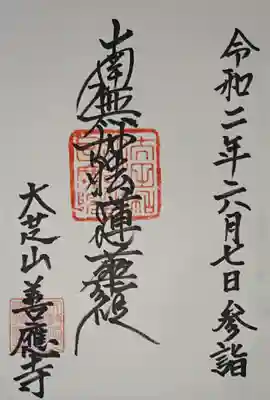 令和二年六月七日参詣
南無妙法蓮華経
大芝山善應寺